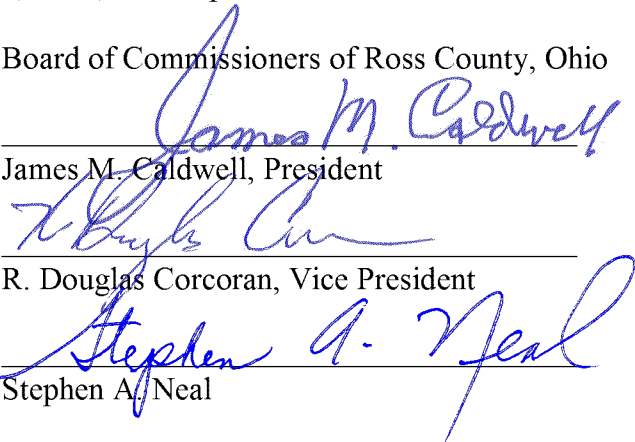 Board of Commissioners of Ross County, Ohio
James M. Caldwell
James M. Caldwell, President
R. Douglas Corcoran, Vice President
Stephen A. Neal
Stephen A. Neal